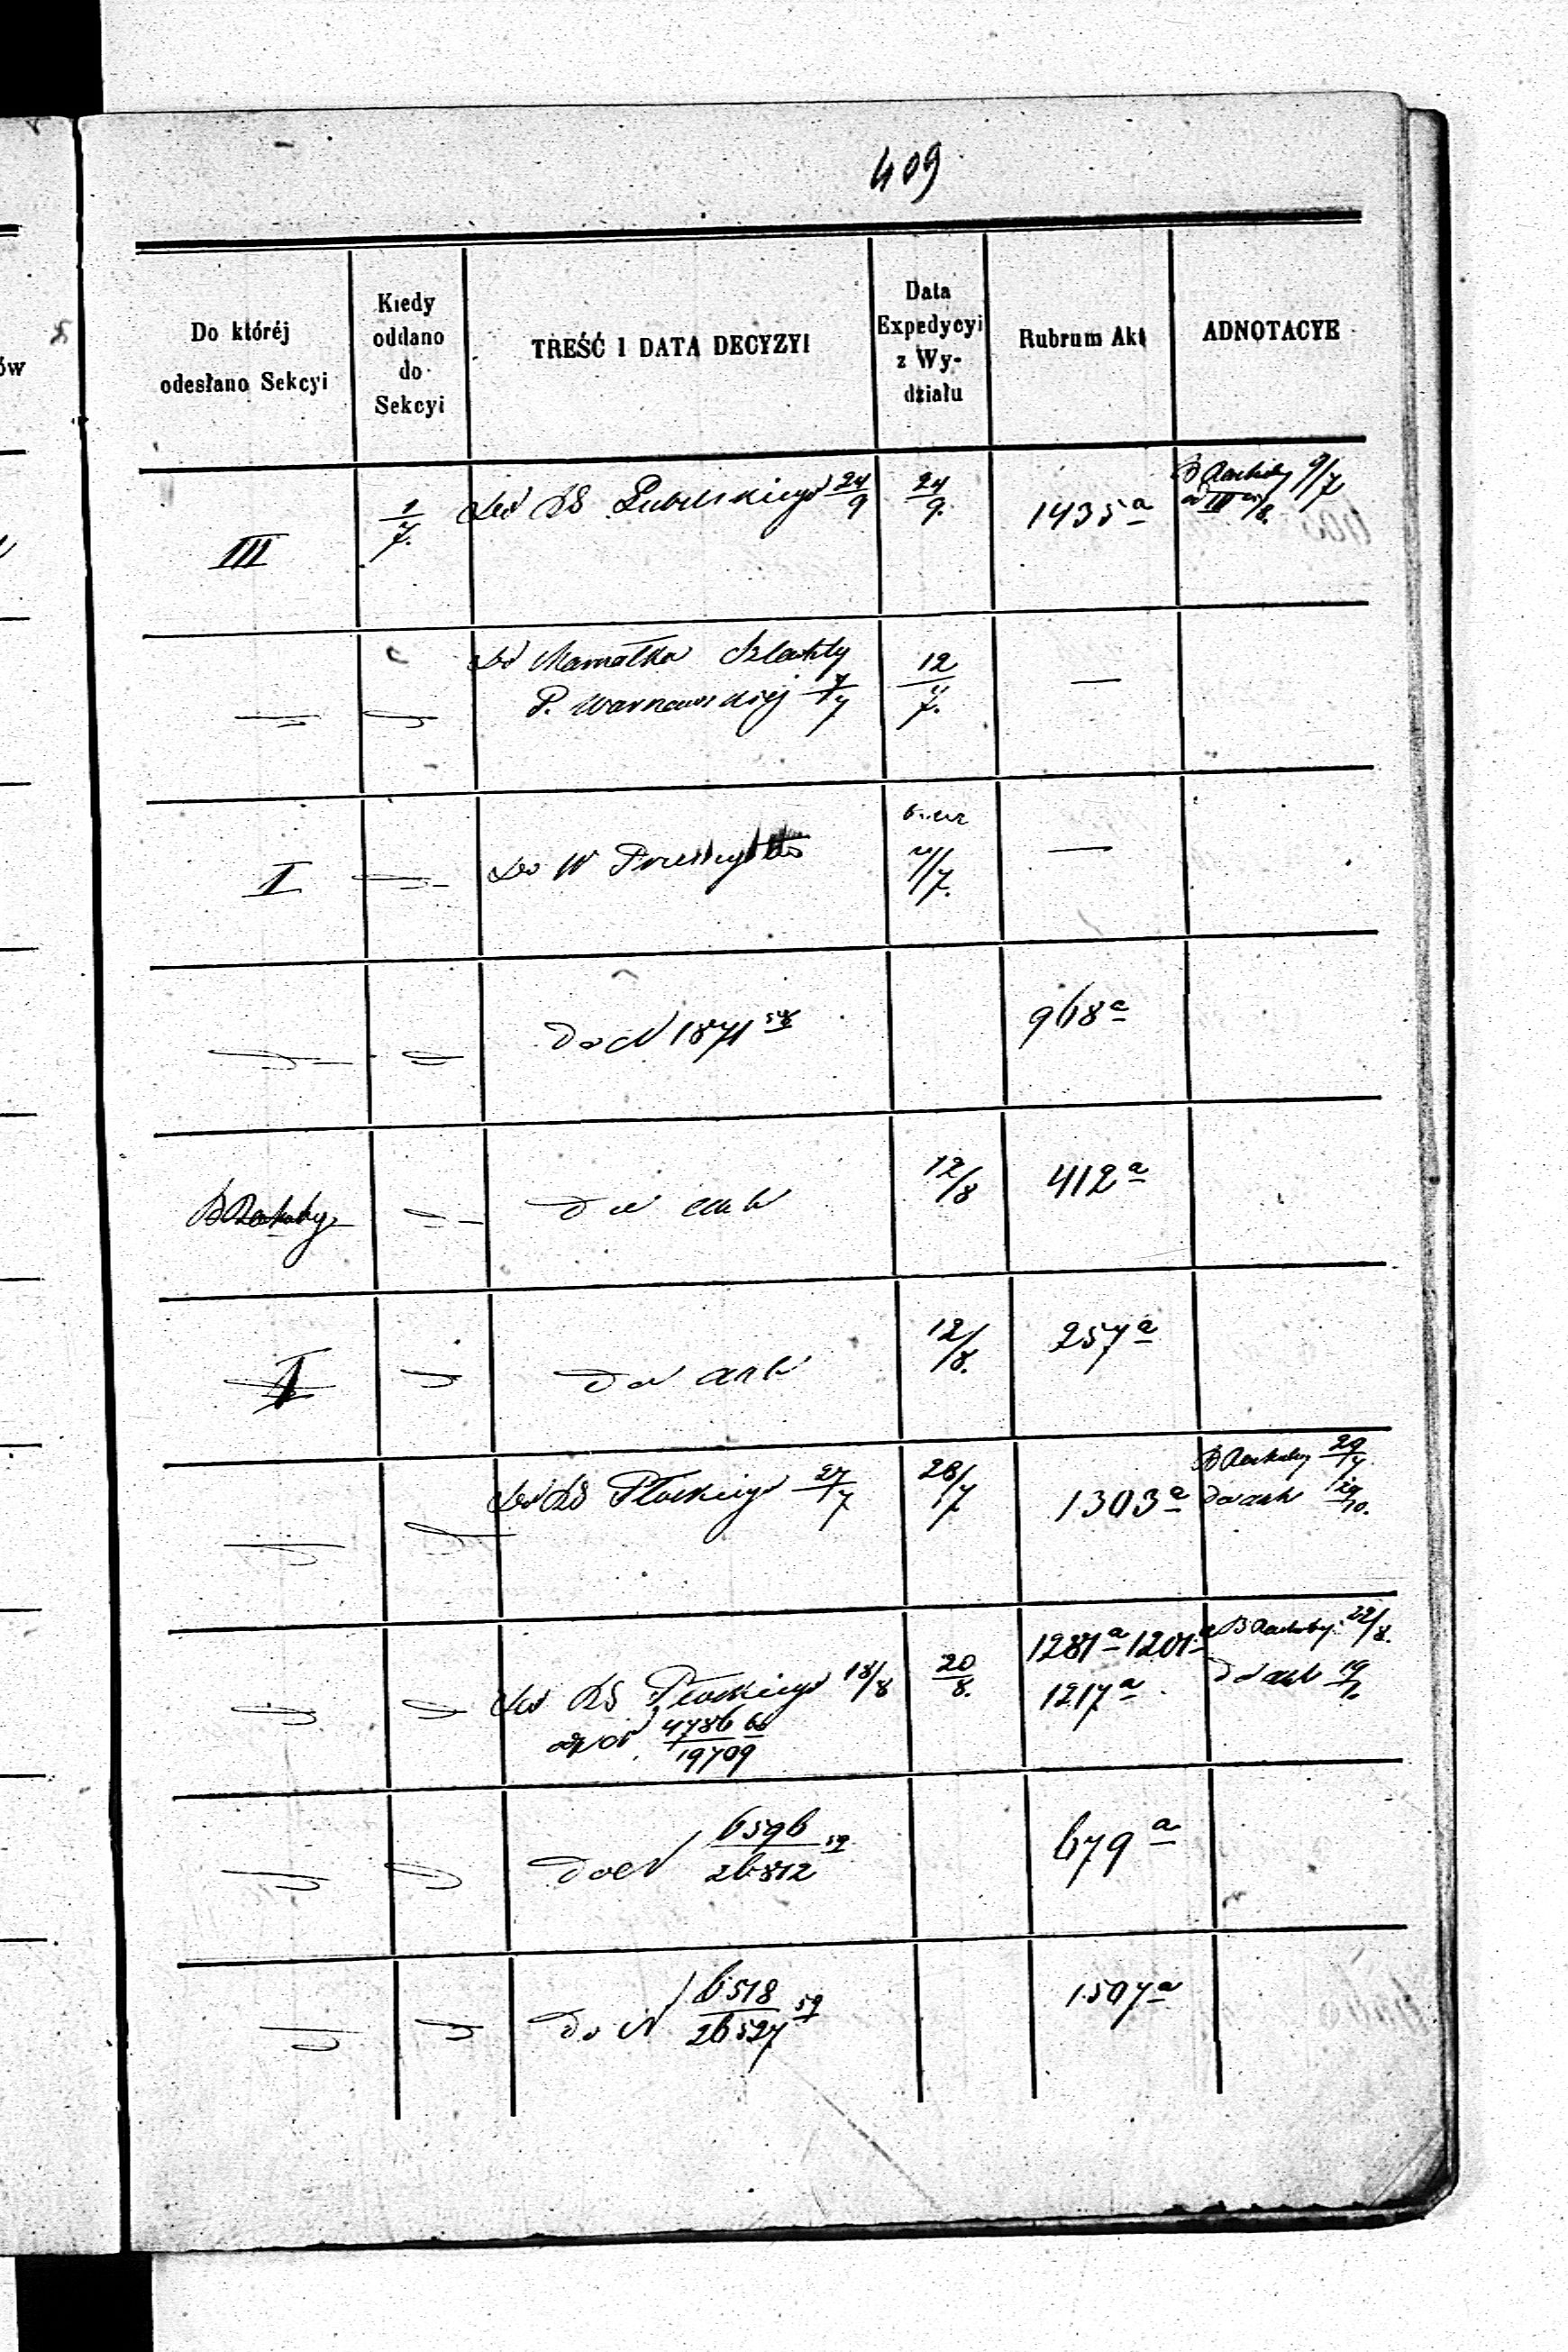 409
Do któréj odesłano Sekcyi
Kiedy oddano do Sekcyi
TREŚĆ I DATA DECYZYI
Data Expedycyi z Wy-działu
Rubrum Akt
ADNOTACYE
III
1/7.
Do RG Lubelskiego 24/9
24/9.
1435 a
9/7
Do Marszałka Szlachty
P. Warszawskiej 7/7
12/7.
—
I
Do W
7/7.
—
Do N 1871 58
968 a
Do akt
12/8
412 a
I
Do akt
12/8.
257 a
Do RG Płockiego 27/7
28/7
1303 a
29/7
Do akt 19/10.
Do RG Płockiego 18/8
4786/19709
20/8.
1281 a 1201 a
1217 a
22/8.
Do akt
Do N 6596/26812 59
679 a
Do N 6518/26527 59
1507 a